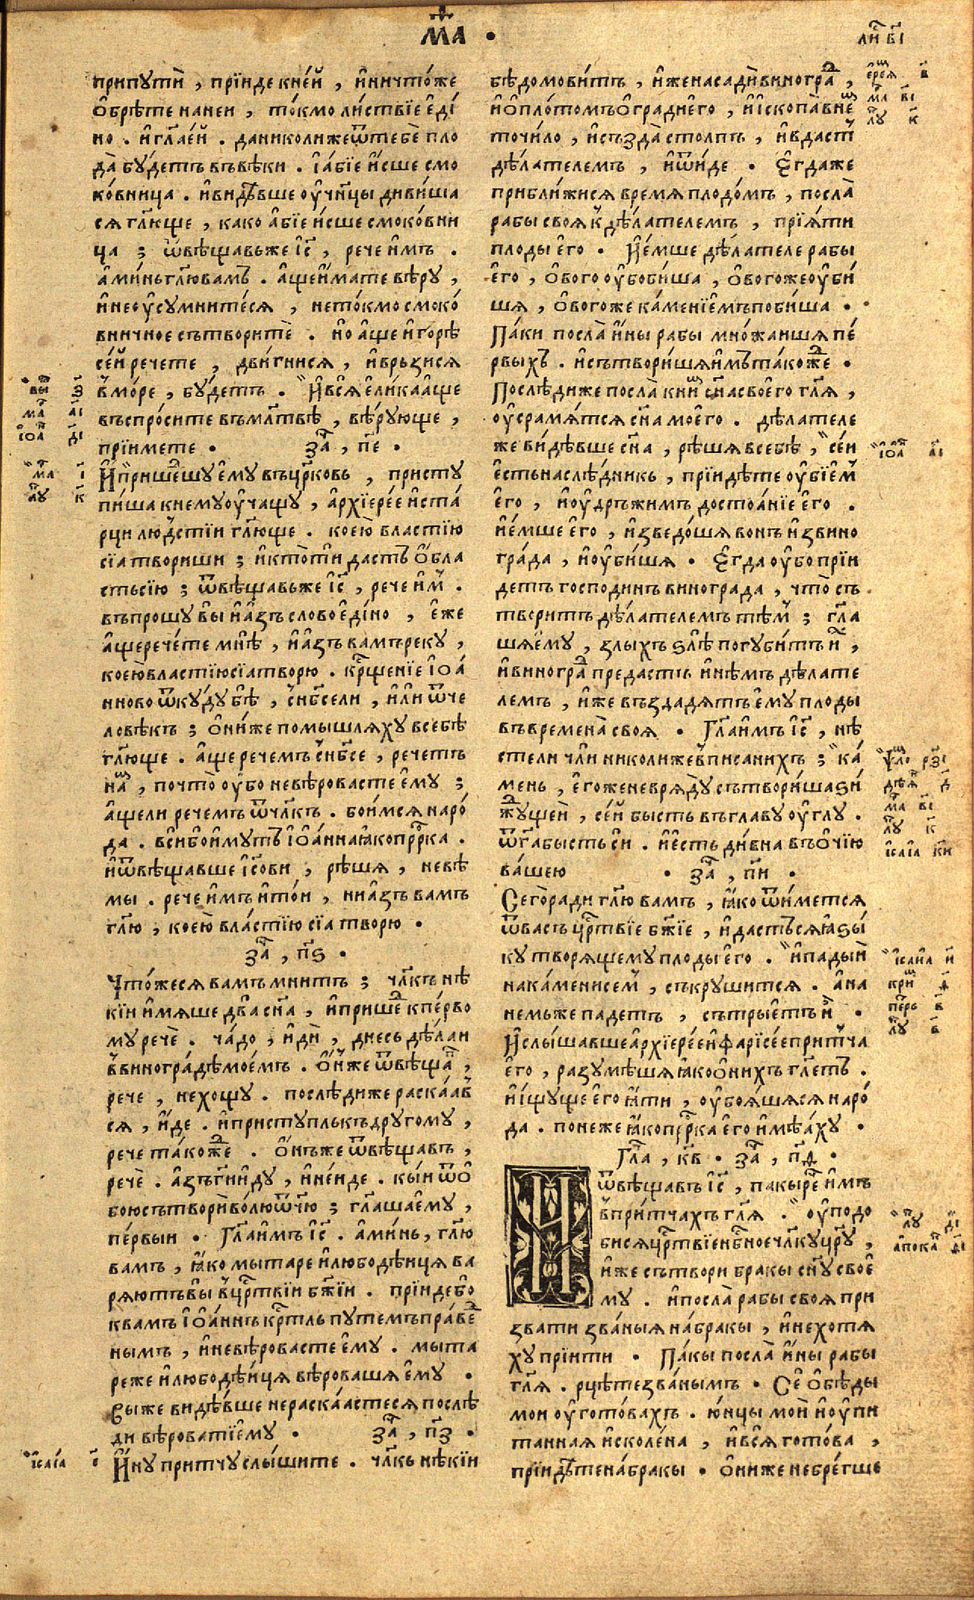 М҃А ·
ли́ ві
припути̑ , прїи́де кне́й , и҆ничто́же
о҆брѣ́те нане́и , то́кмо ли́ствїе е҆ді́
но . и҆ гл҃а е́й . да николи́же ѿ тебѐ пло
да̀ бу́детъ въвѣ́ки . і҆а́бїе и҆́сше смо
ко́вница . и҆ ви́дѣвше оу҆чн҃цы диви́ша
ся гл҃юще , како а҆́бїе и҆́сше смоко́вни
ца ; ѿвѣща́вьже і҆с҃ , рече и҆́мъ .
а҆ми́нь гл҃ю вамъ . а҆ще и҆́мате вѣ́ру ,
и҆ не оу҆сумните́ся , не то́кмо смоко́
вничное сътворите̑ . но а҆́ще и҆ горѣ̀
се́й речете , дви́гнися , и҆ врьзися
в мо́ре , бу́детъ . И҆ вся̀ е҆ли́ка а҆́ще
въспро́сите въ мл҃твѣ , вѣ́рующе ,
прїи́мете . за҃ , п҃е .
И҆ прише́дшу е҆му̀ въ цр҃ковь , присту
пи́ша к нему̀ оу҆ча́щу , а҆рхїере́е и҆ ста́
рци лю́дстїи гл҃юще . кое́ю вла́стїю
сїа̀ твориши ; и҆ кто́ ти дасть о҆́бла
стьсїю ; ѿвѣща́вьже і҆с҃ , рече и҆́м .
въпрошу̀ вы̀ и҆ а҆́зъ сло́во е҆ди́но , е҆́же
а҆́ще рече́те мнѣ̀ , и҆ а҆́зъ вамъ реку̀ ,
кое́ю вла́стїю сїа̀ творю . крщ҃е́нїе і҆оа́
нново ѿку́ду бѣ̀ , с нб҃се ли , и҆́ли ѿ че
ловѣ́къ ; о҆ни́же помышля́ху в себѣ̀
гл҃юще . а҆́ще рече́мъ с нб҃се , рече́тъ
на́м , почто̀ оу҆́бо не вѣ́ровасте е҆му̀ ;
а҆́ще ли рече́мъ ѿ чл҃къ . бои́мся наро́
да . вси́ бо и҆́мутъ і҆оа́нна ꙗ҆́ко прр҃ка .
и҆ ѿвѣща́вше і҆с҃ови , рѣ́ша , не вѣ́
мы . рече и҆́мъ и҆ то́и , ни а҆́зъ вамъ
гл҃ю , кое́ю вла́стїю сїа̀ творю .
за҃ , п҃ѕ .
Что́ же ся вамъ мни́тъ ; чл҃къ нѣ́
кїи и҆мя́ше два̀ сн҃а , и҆ прише́д к пе́рво
му речѐ . ча́до , и҆ди̑ , дне́сь дѣ́лаи
в виногра́дѣ мое́мъ . О҆́нже ѿвѣща́в ,
рече , не хощу̀ . послѣди́же раска́ав
ся , и҆́де . и҆ присту́пль къ друго́му ,
рече та́коже . о҆́нъже ѿвѣща́въ ,
речѐ . а҆́зъ гн҃ и҆ду , и҆ не и́де . кы́и ѿ о҆
бою̀ сътвори̑ во́лю ѿч҃ю ; гл҃аша е҆му̀ ,
пе́рвыи . Гл҃а и҆́мъ і҆с҃ . а҆ми́нь , гл҃ю
вамъ , ꙗ҆́ко мытаре и҆ любодѣ́ица ва
ря́ютъ вы в црт҃вїи бж҃їи . прїи́де бо
к вамъ і҆оа́ннъ крт҃ль путе́мъ пра́ве
нымъ , и҆ не вѣ́ровасте е҆му̀ . мыта
ре́же и҆ любодѣ́ица вѣ́роваша е҆му̀ .
Вы́же ви́дѣвше не раска́астеся послѣ
ди вѣ́ровати е҆му . за҃ , п҃з .
И҆́ну при́тчу слы́шите . чл҃къ нѣ́кїи
бѣ̀ домови́тъ , и҆́же насади̑ виногра́д ,
и҆ о҆пло́томъ о҆гради̑ е҆го , и҆ и҆скопа̀ в не́м
точи́ло , и҆ създа̀ сто́лпъ , и҆ вдасть
дѣ́лателемъ , и҆ ѿи́де . Е҆гда́же
прибли́жися время плодо́мъ , посла̀
рабы своя к дѣ́лателемъ , прїя́ти
плоды̀ е҆го . И҆ е́мше дѣ́лателе рабы
е҆го , о҆́вого оу҆́бо би́ша , о҆́вогоже оу҆би́
ша , о҆́вогоже ка́менїемъ поби́ша .
Па́ки посла̀ и҆́ны рабы мно́жаишя пе́
рвыхъ . и҆ сътвори́шя и҆́мъ та́коже .
Послѣди́же посла̀ к ни́м сн҃а своего̀ гл҃я ,
оу҆срамя́тся сн҃а мое́го . дѣ́лателе
же ви́дѣвше сн҃а , рѣ́шя в себѣ , се́и
е҆сть наслѣ́дникъ , прїидѣ́те оу҆бїе́м
е҆го , и҆ оу҆дръжи́мъ достоа́нїе е҆го .
и҆ е́мше е҆го , и҆зведо́шя во́нъ и҆з вино
гра́да , и҆ оу҆би́шя . Е҆гда оу҆́бо прїи́
детъ господи́нъ винограда , что̀ съ
твори́тъ дѣ́лателемъ тѣ́м ; гл҃а
шя е҆му , злыхъ ѕлѣ̀ погуби́тъ и҆́х ,
и҆ виногра́д преда́сть и҆нѣ́мъ дѣ́лате
лемъ , и҆́же възда́дятъ е҆му плоды
въ времена̀ своя . Гл҃а и҆́мъ і҆с҃ , нѣ́
сте ли чли́ николи́же в писа́нихъ ; ка́
мень , е҆го́же не в ряду̀ сътвори́ша ѕи́
жущеи , се́й бы́сть въ главу оу҆́глу .
ѿ г҃а бы́сть си . и҆ е҆́сть ди́вна въ о҆чїю
ва́шею . за҃ , п҃и .
Сего̀ ра́ди гл҃ю вамъ , ꙗ҆́ко ѿи́мется
ѿ ва́съ црт҃вїе бж҃їе , и҆ да́сться ꙗ҆ѕы́
ку творя́щему плоды̀ е҆го . и҆ пады́й
на ка́мени се́м , съкруши́тся . а҆ на
не́мьже паде́тъ , сътры́етъ и҆̀ .
И҆ слы́шавше а҆рхїере́е и҆ фарїсе́е при́тча
е҆го , разумѣ́шя ꙗ҆́ко о҆ ни́хъ гл҃етъ .
и҆ и҆́щуще е҆го ꙗ҆́ти , оу҆боя́шяся наро́
да . поне́же ꙗ҆́ко прр҃ка е҆го и҆мѣ́аху .
Гл҃а , к҃в . за҃ , п҃д .
И ѿвѣща́въ і҆с҃ , па́кы рече и҆́мъ
в при́тчахъ гл҃я . оу҆подо́
бися црт҃вїе нб҃ное чл҃ку цр҃ю ,
и҆́же сътвори бра́кы сн҃у свое
му . и҆ посла̀ рабы своя при
зва́ти зва́ныя на́ бракы , и҆ не хотя́
ху прїи́ти . Па́кы посла̀ и҆́ны рабы
гл҃я . рцѣ́те зва́нымъ . Се̑ о҆бѣ́дъ
мои оу҆гото́вахъ . ю҆нцы мои̑ и҆ оу҆пи
та́нная и҆сколе́на , и҆ вся̀ гото́ва ,
прїидѣ́те на́ бракы . о҆ни́же небре́гше